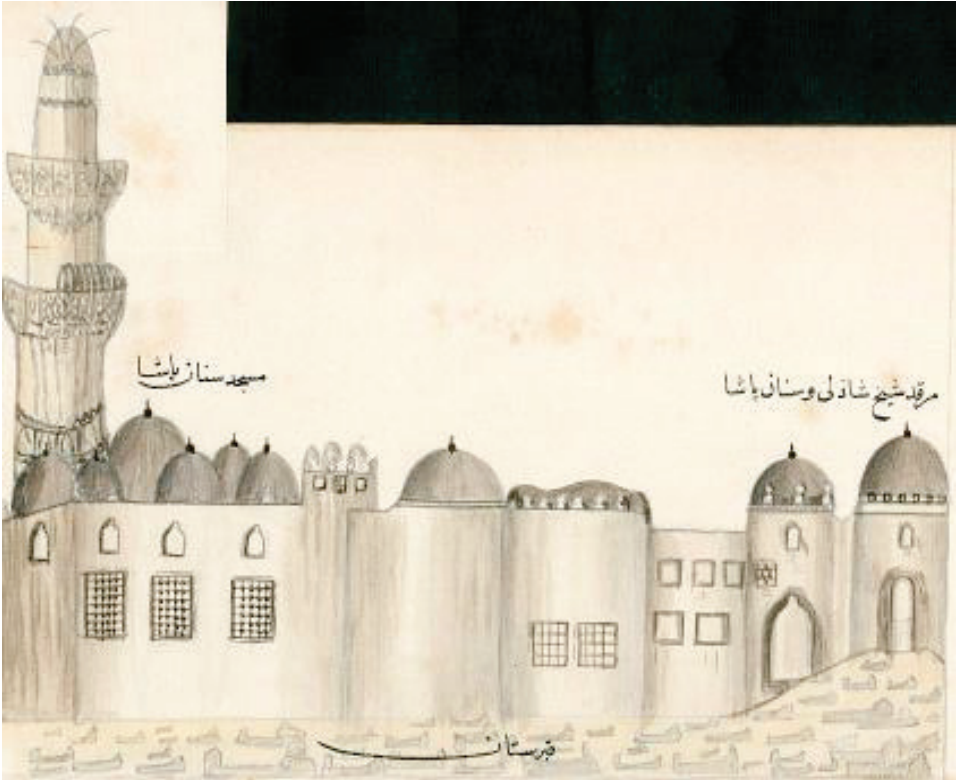 مسجد سنان باشا
مرقد شیخ شاذلی و سنان باشا
قبرستان